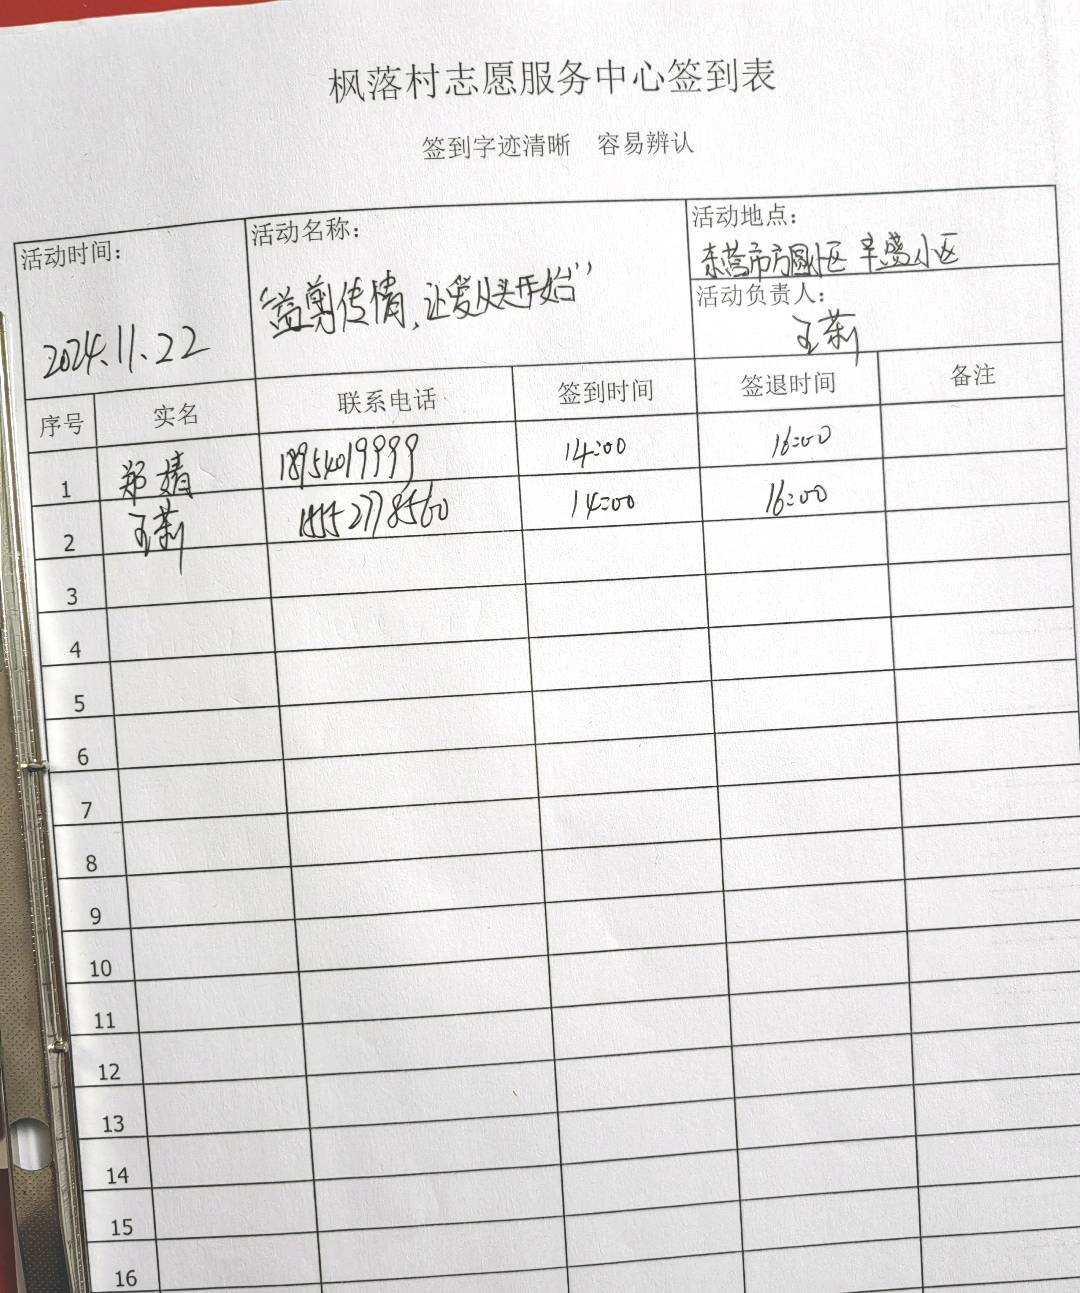 枫落村志愿服务中心签到表
签到字迹清晰 容易辨认
活动时间： 活动名称： 活动地点：
东营市方圆小区 丰盛小区
“益剪传情，让爱从头开始”
活动负责人：
2024.11.22 王莉
序号 实名 联系电话 签到时间 签退时间 备注
1 郑婧 18954019999 14:00 16:00
2 王莉 14:00 16:00
3
4
5
6
7
8
9
10
11
12
13
14
15
16